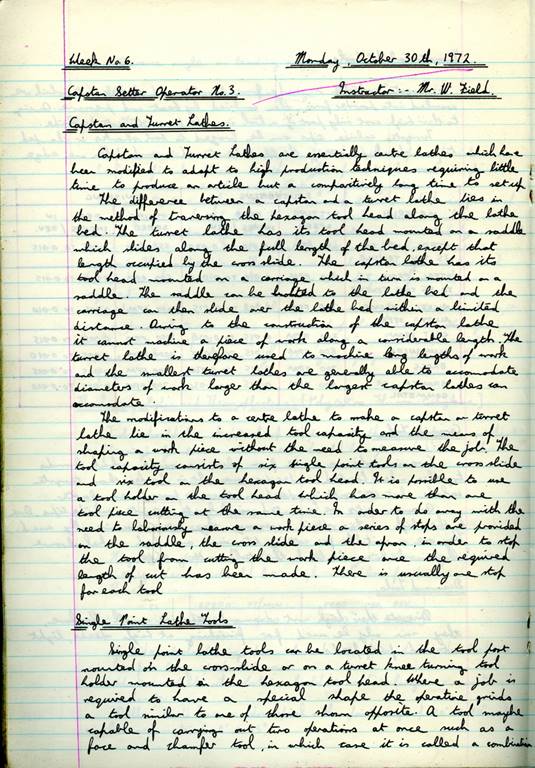 Week No 6.
Monday, October 30th, 1972.
Capstan Setter Operator No.3.
Instructor :- Mr. W. Field.
Capstan and Turret Lathes.
Capstan and Turret Lathes are essentially centre lathes which have
been modified to adapt to high production techniques requiring little
time to produce an article but a comparitively long time to set up
The difference between a capstan and a turret lathe lies in
the method of traversing the hexagon tool head along the lathe
bed. The turret lathe has its tool head mounted on a saddle
which slides along the full length of the bed, except that
length occupied by the cross slide. The capstan lathe has its
tool head mounted on a carriage which in turn is mounted on a
saddle. The saddle can be locked to the lathe bed and the
carriage can then slide over the lathe bed within a limited
distance. Owing to the construction of the capstan lathe
it cannot machine a piece of work along a considerable length. The
turret lathe is therefore used to machine long lengths of work
and the smallest turret lathes are generally able to accomodate
diameters of work larger than the largest capstan lathes can
accomodate.
The modifications to a centre lathe to make a capstan or turret
lathe lie in the increased tool capacity and the means of
shaping a work piece without the need to measure the job. The
tool capacity consists of six single point tools on the cross slide
and six tool on the hexagon tool head. It is possible to use
a tool holder on the tool head which has more than one
tool piece cutting at the same time. In order to do away with the
need to laboriously measure a work piece a series of stops are provided
on the saddle, the cross slide and the apron, in order to stop
the tool from cutting the work piece once the required
length of cut has been made. There is usually one stop
for each tool
Single Point Lathe Tools
Single point lathe tools can be located in the tool post
mounted on the cross slide or on a turret knee turning tool
holder mounted on the hexagon tool head. Where a job is
required to have a special shape the operative grinds
a tool similar to one of those shown opposite. A tool maybe
capable of carrying out two operations at once such as a
face and chamfer tool, in which case it is called a combination